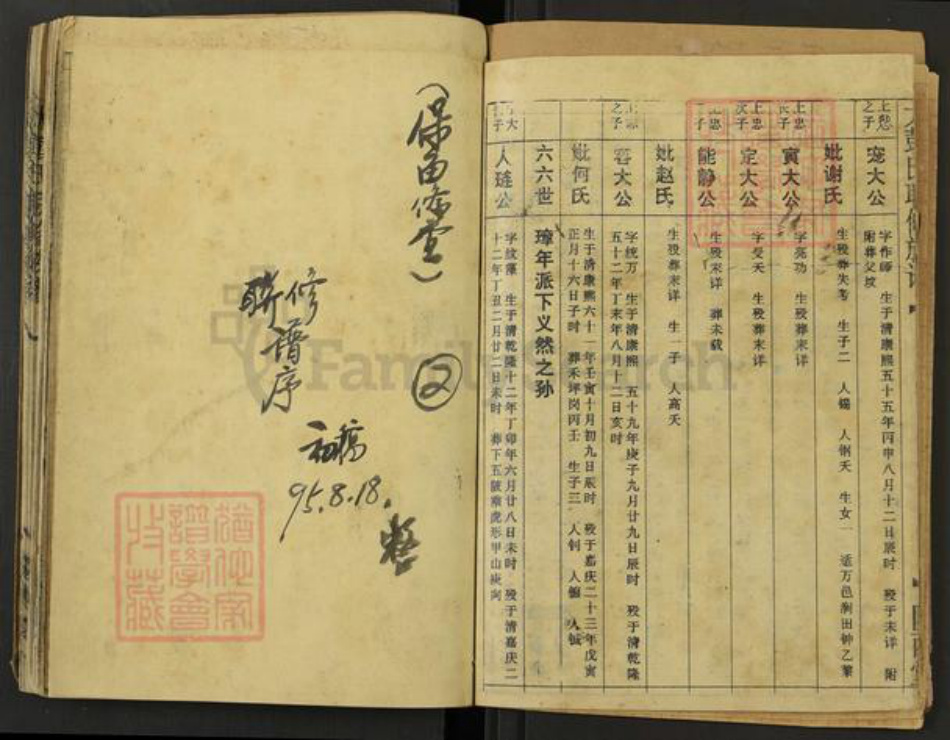 （保留修堂）
②
修
联谱序
初稿
95.8.18.
谱学会
收藏
FamilySearch
宠大公
字作师 生于清康熙五十五年丙申八月十二日辰时 殁于未详 附
附葬父坟
妣谢氏
生殁葬失考 生子二 人锡 人钢夭 生女一 适万邑荆田钟乙莱
寅大公
字亮功 生殁葬未详
定大公
字受天 生殁葬未详
能静公
生殁未详 葬未载
妣赵氏
生殁葬未详 生一子 人高夭
容大公
字统万 生于清康熙五十九年庚子九月廿九日辰时 殁于清乾隆
五十二年丁未年八月十二日亥时
妣何氏
生于清康熙六十一年壬寅十月初九日辰时 殁于嘉庆二十三年戊寅
正月十六日子时 葬禾坪岗丙壬 生子三 人钊 人锦 人钺
六六世
璋年派下义然之孙
人琏公
字纹藻 生于清乾隆十二年丁卯年六月廿八日未时 殁于清嘉庆二
十二年丁丑二月廿二日未时 葬下五陂雍虎形甲山庚向